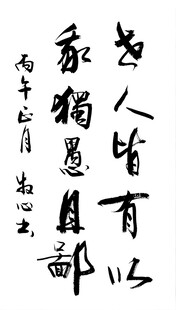 世人皆有以
我獨愚且鄙
丙午正月 牧心书